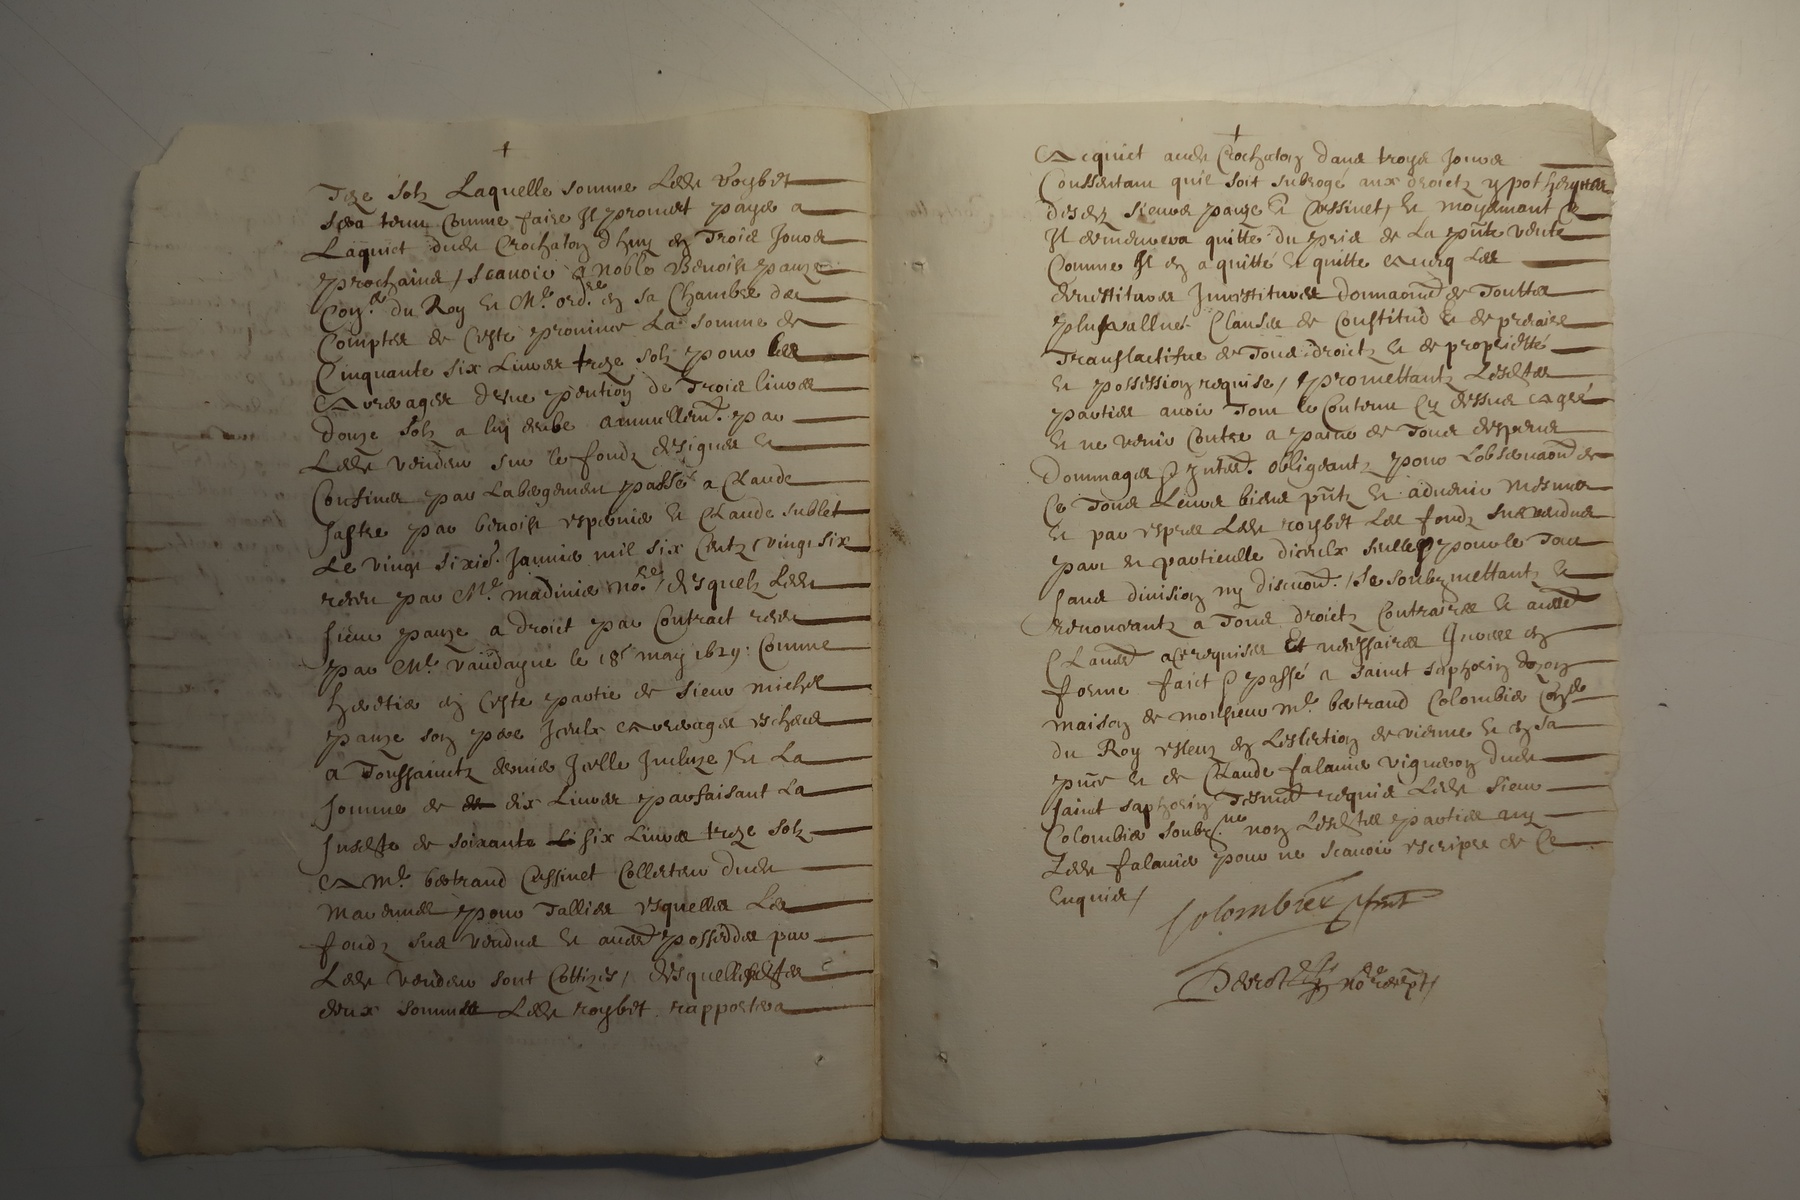 Treze solz Laquelle somme Ledt Roybet
sera tenu comme faire Il promet payer a
Lacquict dudt Crochaton dhuy en Trois Jours
prochains / scauoir a noble Benoist panze
Conr du Roy et Me ordre en sa Chambre des
Comptes de Ceste prouince La somme de
Cinquante six Liures treze solz pour les
Arrerages dvne pention de Trois liures
douze solz a luy deube annuellemt par
Ledt vendeur sur le fondz designer et
Confiner par Labergement passé a Claude
Jastre par benoist et Claude sublet
Le vingt sixie Januier mil six Centz vingt six
receu par Me madinier nore / desquelz Ledt
sieur panze a droict par Contract receu
par Me vaudayne le 18e may 1629 : Comme
heritier en Ceste partie de sieur michel
panze son pere Iceulx arrerages escheus
a Toussainctz dernier Icelle Incluze / Et La
somme de dix Liures parfaisant La
susdste de soixante six Liures treze solz
A Me bertrand Cussinet Collecteur dudt
pour Tailles esquelles Les
fondz sus vendus et auttres possedes par
Ledt vendeur sont Cottizes / desquelles
deux sommes Ledt roybet rapportera
Acquict audt Crochaton dans troys Jours
Consentant quil soit subrogé aux droictz ypothecques
desdtz sieurs panze Et Cussinet / Et moyenant Ce
Il demeurera quitte du prix de La pnte vente
Comme Il en a quitté Et quitte Auecq Les
deuestitures Inuestitures de Touttes
plusvallues Clauses de Constitut Et de precaire
Translactifue de Tous droictz Et de proprietté
Et possession requise / promettantz Lesdtes
parties auoir Tout le Contenu Cy dessus Agré
Et ne venir Contre a paine de Tous despens
Dommages & Interestz obligeantz pour Lobseruaon de
Ce Tous Leurs biens pntz Et aduenir mesmes
Et par expres Ledt roybet Les fondz susvendus
part et particulle diceulx seulle pour le Tout
sans diuision ny discution / se soubzmettantz Et
renonceantz a Tous droictz Contraires Et auttres
Clauses a Ce requises Et necessaires Jurees en
forme faict & passé a saint saphorin dozon
maison de monsieur Me bertrand Colombier Conr
du Roy esleuz en Leslection de vienne Et en sa
pnce Et de Claude falanier vigneron dudt
saint saphorin Tesmoins requis Ledt sieur
Colombier soubzne non Lesdtes parties ny
Ledt falanier pour ne scauoir escripre de Ce
Enquis /
Colombier pnt
nore recept